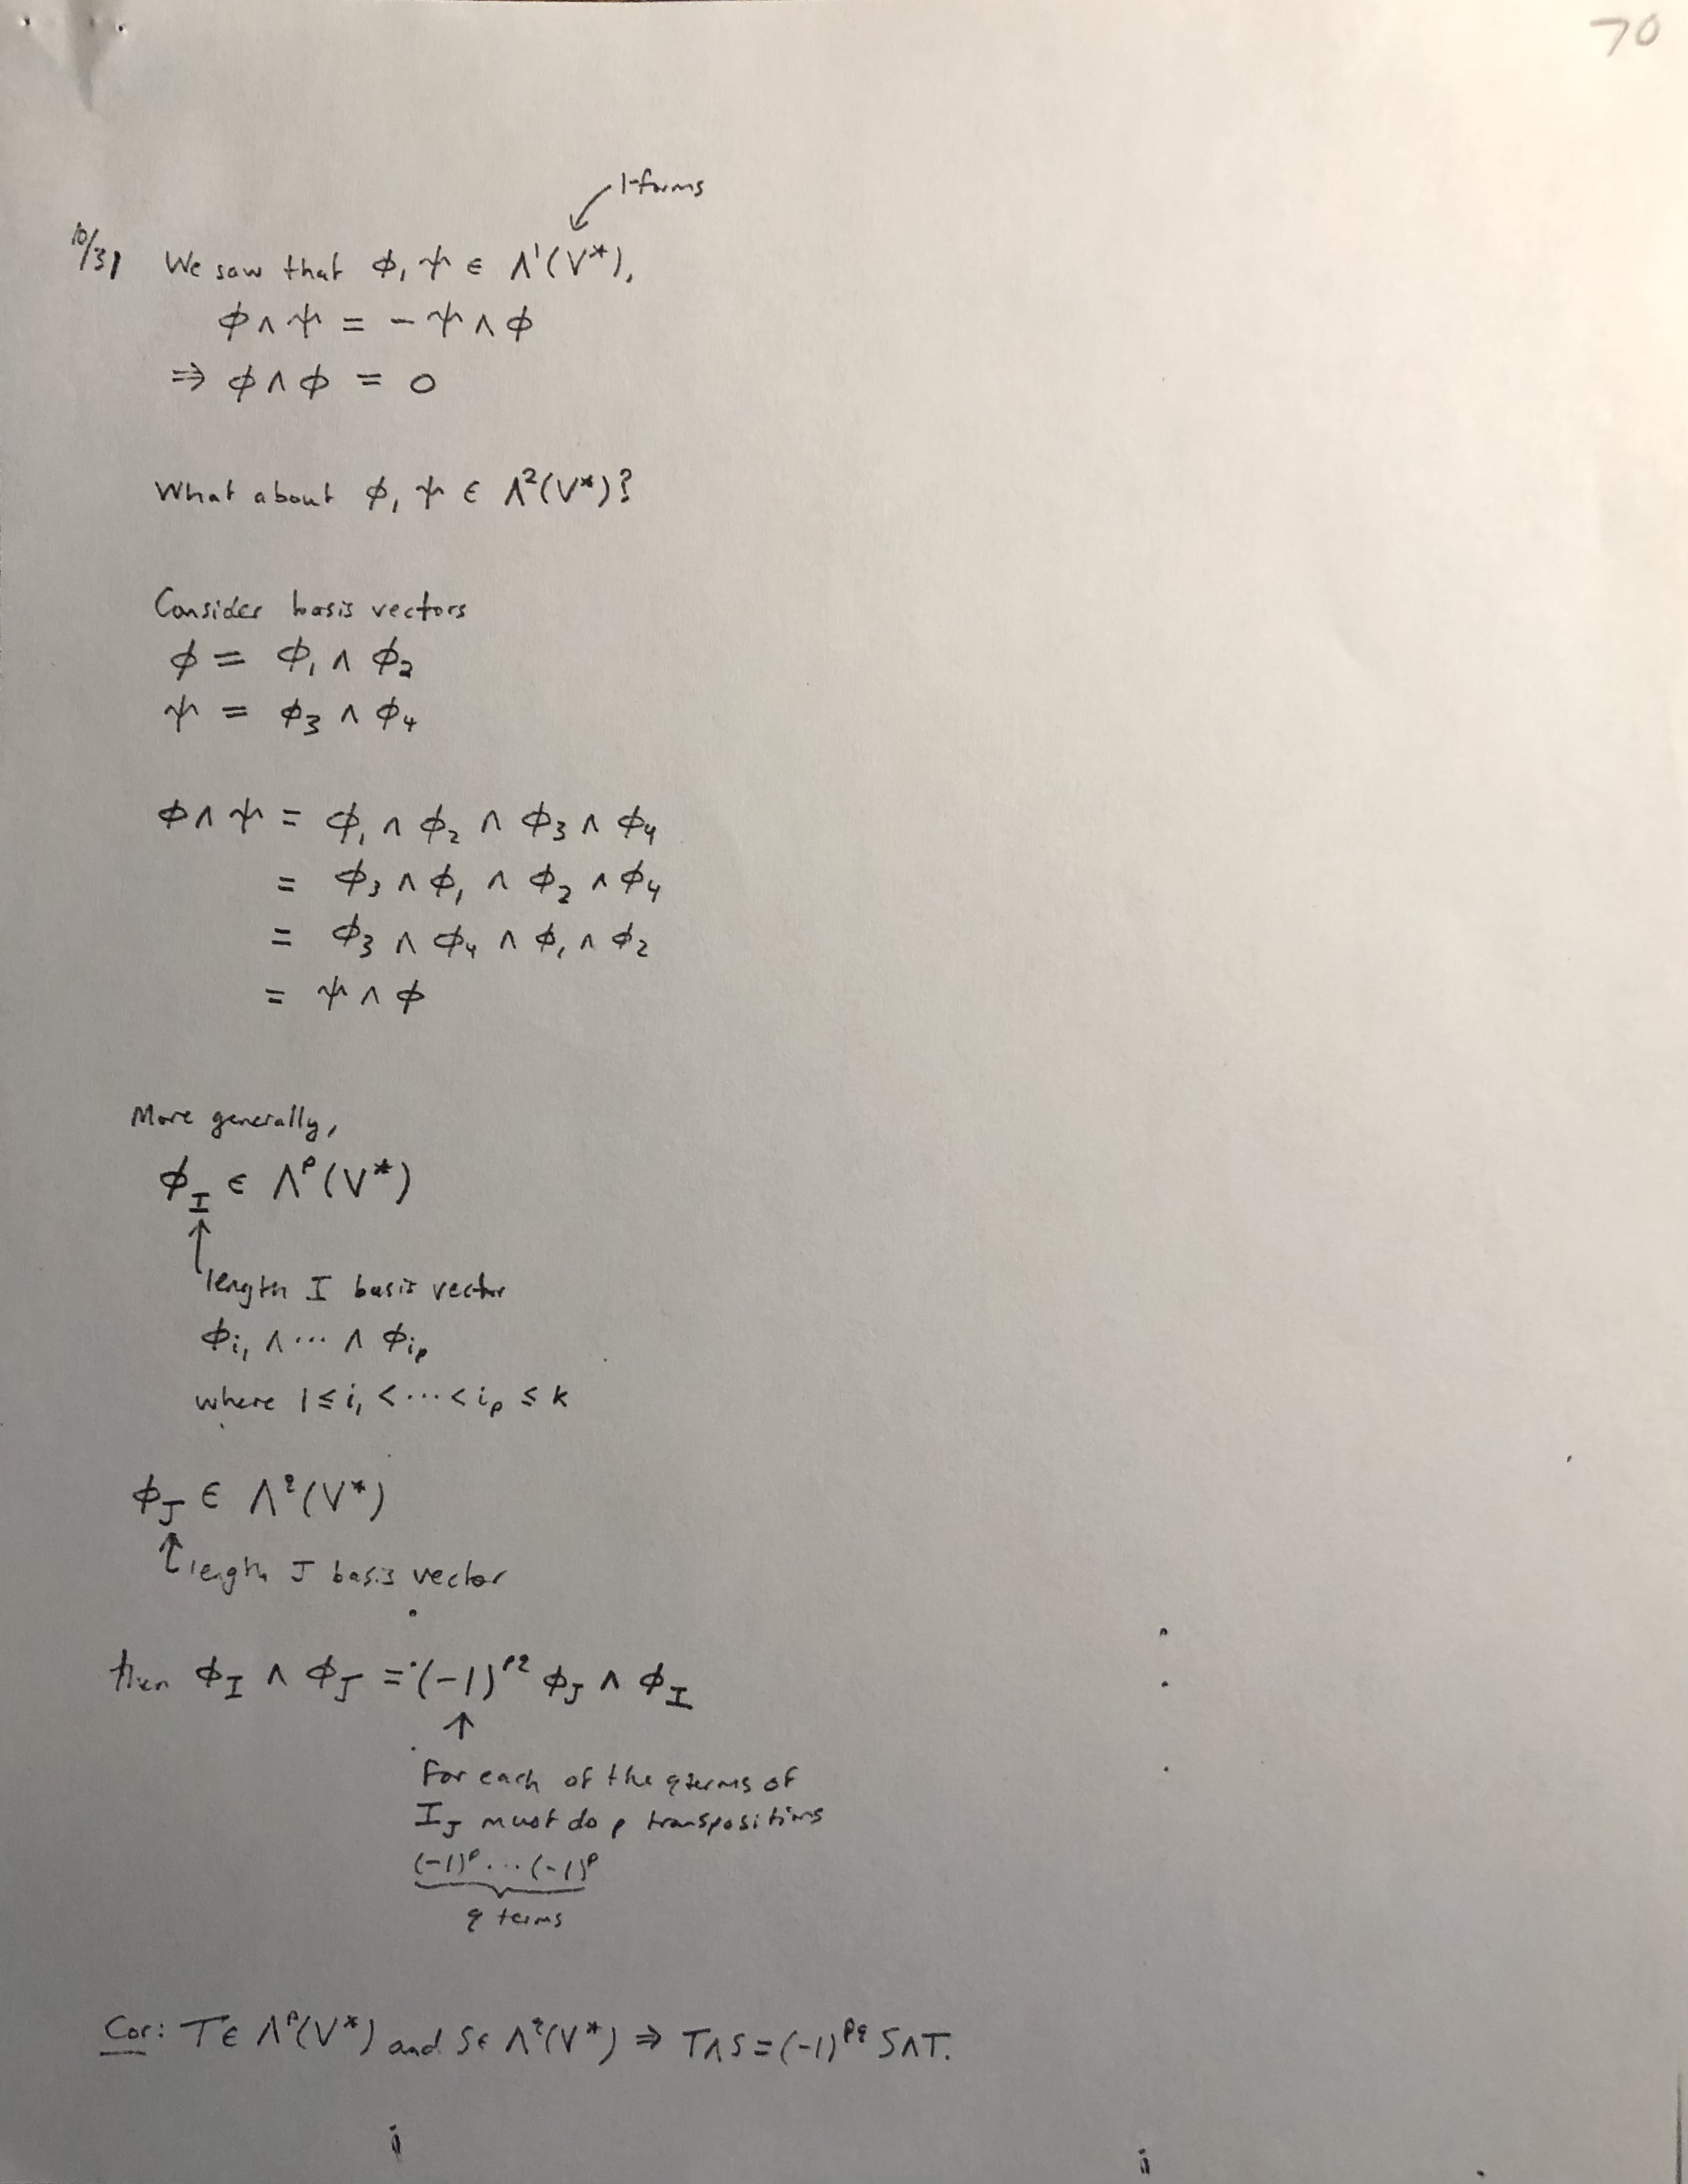 70
1-forms
10/31 We saw that ϕ, ψ ∈ Λ¹(V*),
ϕ ∧ ψ = - ψ ∧ ϕ
⇒ ϕ ∧ ϕ = 0
What about ϕ, ψ ∈ Λ²(V*)?
Consider basis vectors
ϕ = ϕ₁ ∧ ϕ₂
ψ = ϕ₃ ∧ ϕ₄
ϕ ∧ ψ = ϕ₁ ∧ ϕ₂ ∧ ϕ₃ ∧ ϕ₄
= ϕ₃ ∧ ϕ₁ ∧ ϕ₂ ∧ ϕ₄
= ϕ₃ ∧ ϕ₄ ∧ ϕ₁ ∧ ϕ₂
= ψ ∧ ϕ
More generally,
ϕ_I ∈ Λ^p(V*)
length I basis vector
ϕ_{i₁} ∧ ⋯ ∧ ϕ_{i_p}
where 1 ≤ i₁ < ⋯ < i_p ≤ k
ϕ_J ∈ Λ^q(V*)
length J basis vector
then ϕ_I ∧ ϕ_J = (-1)^{pq} ϕ_J ∧ ϕ_I
For each of the q terms of
I_J must do p transpositions
(-1)^p ⋯ (-1)^p
q terms
Cor: T ∈ Λ^p(V*) and S ∈ Λ^q(V*) ⇒ T∧S = (-1)^{pq} S∧T.